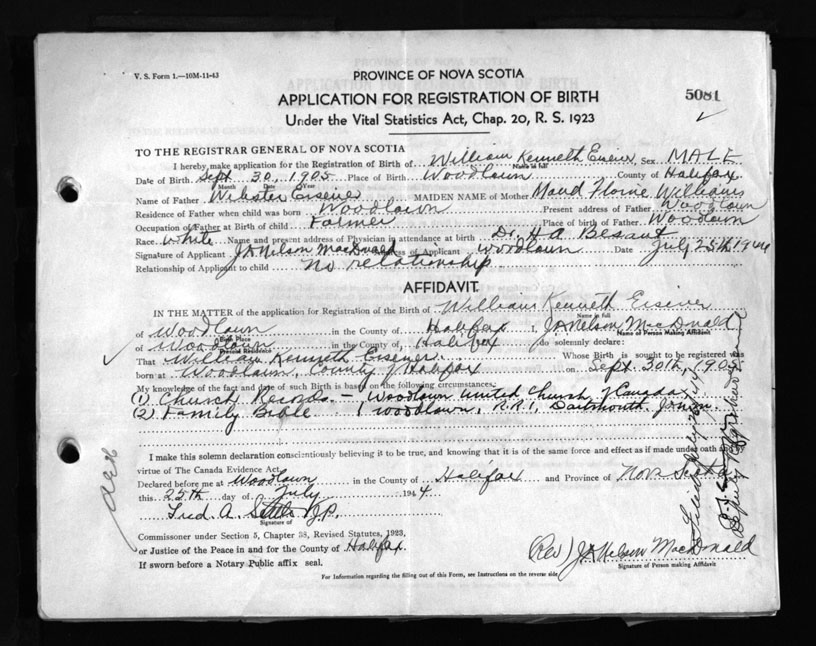 V. S. Form 1.—10M-11-43
PROVINCE OF NOVA SCOTIA
APPLICATION FOR REGISTRATION OF BIRTH
5081
Under the Vital Statistics Act, Chap. 20, R. S. 1923
TO THE REGISTRAR GENERAL OF NOVA SCOTIA
I hereby make application for the Registration of Birth of William Kenneth Eisener, Sex MALE
Name in full
Date of Birth Sept 30, 1905 Place of Birth Woodlawn County of Halifax
Month Date Year
Name of Father Webster Eisener MAIDEN NAME of Mother Maud Williams
Residence of Father when child was born Woodlawn Present address of Father Woodlawn
Occupation of Father at Birth of child Farmer Place of birth of Father Woodlawn
Race White Name and present address of Physician in attendance at birth Dr. H A Besant
Signature of Applicant J A Nelson MacDonald Address of Applicant Woodlawn Date July 25th 1944
Relationship of Applicant to child No relationship
AFFIDAVIT.
IN THE MATTER of the application for Registration of the Birth of William Kenneth Eisener
Name in full
of Woodlawn in the County of Halifax, J A Nelson MacDonald
Birth Place Name of Person Making Affidavit
of Woodlawn in the County of, Halifax do solemnly declare:
Present Residence
That William Kenneth Eisener. Whose Birth is sought to be registered was
born at Woodlawn, County of Halifax on Sept. 30th, 1905
My knowledge of the fact and date of such Birth is based on the following circumstances:
(1) Church Records — Woodlawn United Church of Canada
(2) Family Bible Woodlawn, R.R.1, Dartmouth
I make this solemn declaration conscientiously believing it to be true, and knowing that it is of the same force and effect as if made under oath and
virtue of The Canada Evidence Act.
Declared before me at Woodlawn in the County of Halifax and Province of Nova Scotia
this 25th day of July 1944
Fred A. J.P.
Signature of
Commissioner under Section 5, Chapter 38, Revised Statutes, 1923,
or Justice of the Peace in and for the County of Halifax.
(Rev) J A Nelson MacDonald
Signature of Person making Affidavit
If sworn before a Notary Public affix seal.
For Information regarding the filling out of this Form, see Instructions on the reverse side
Deputy Registrar